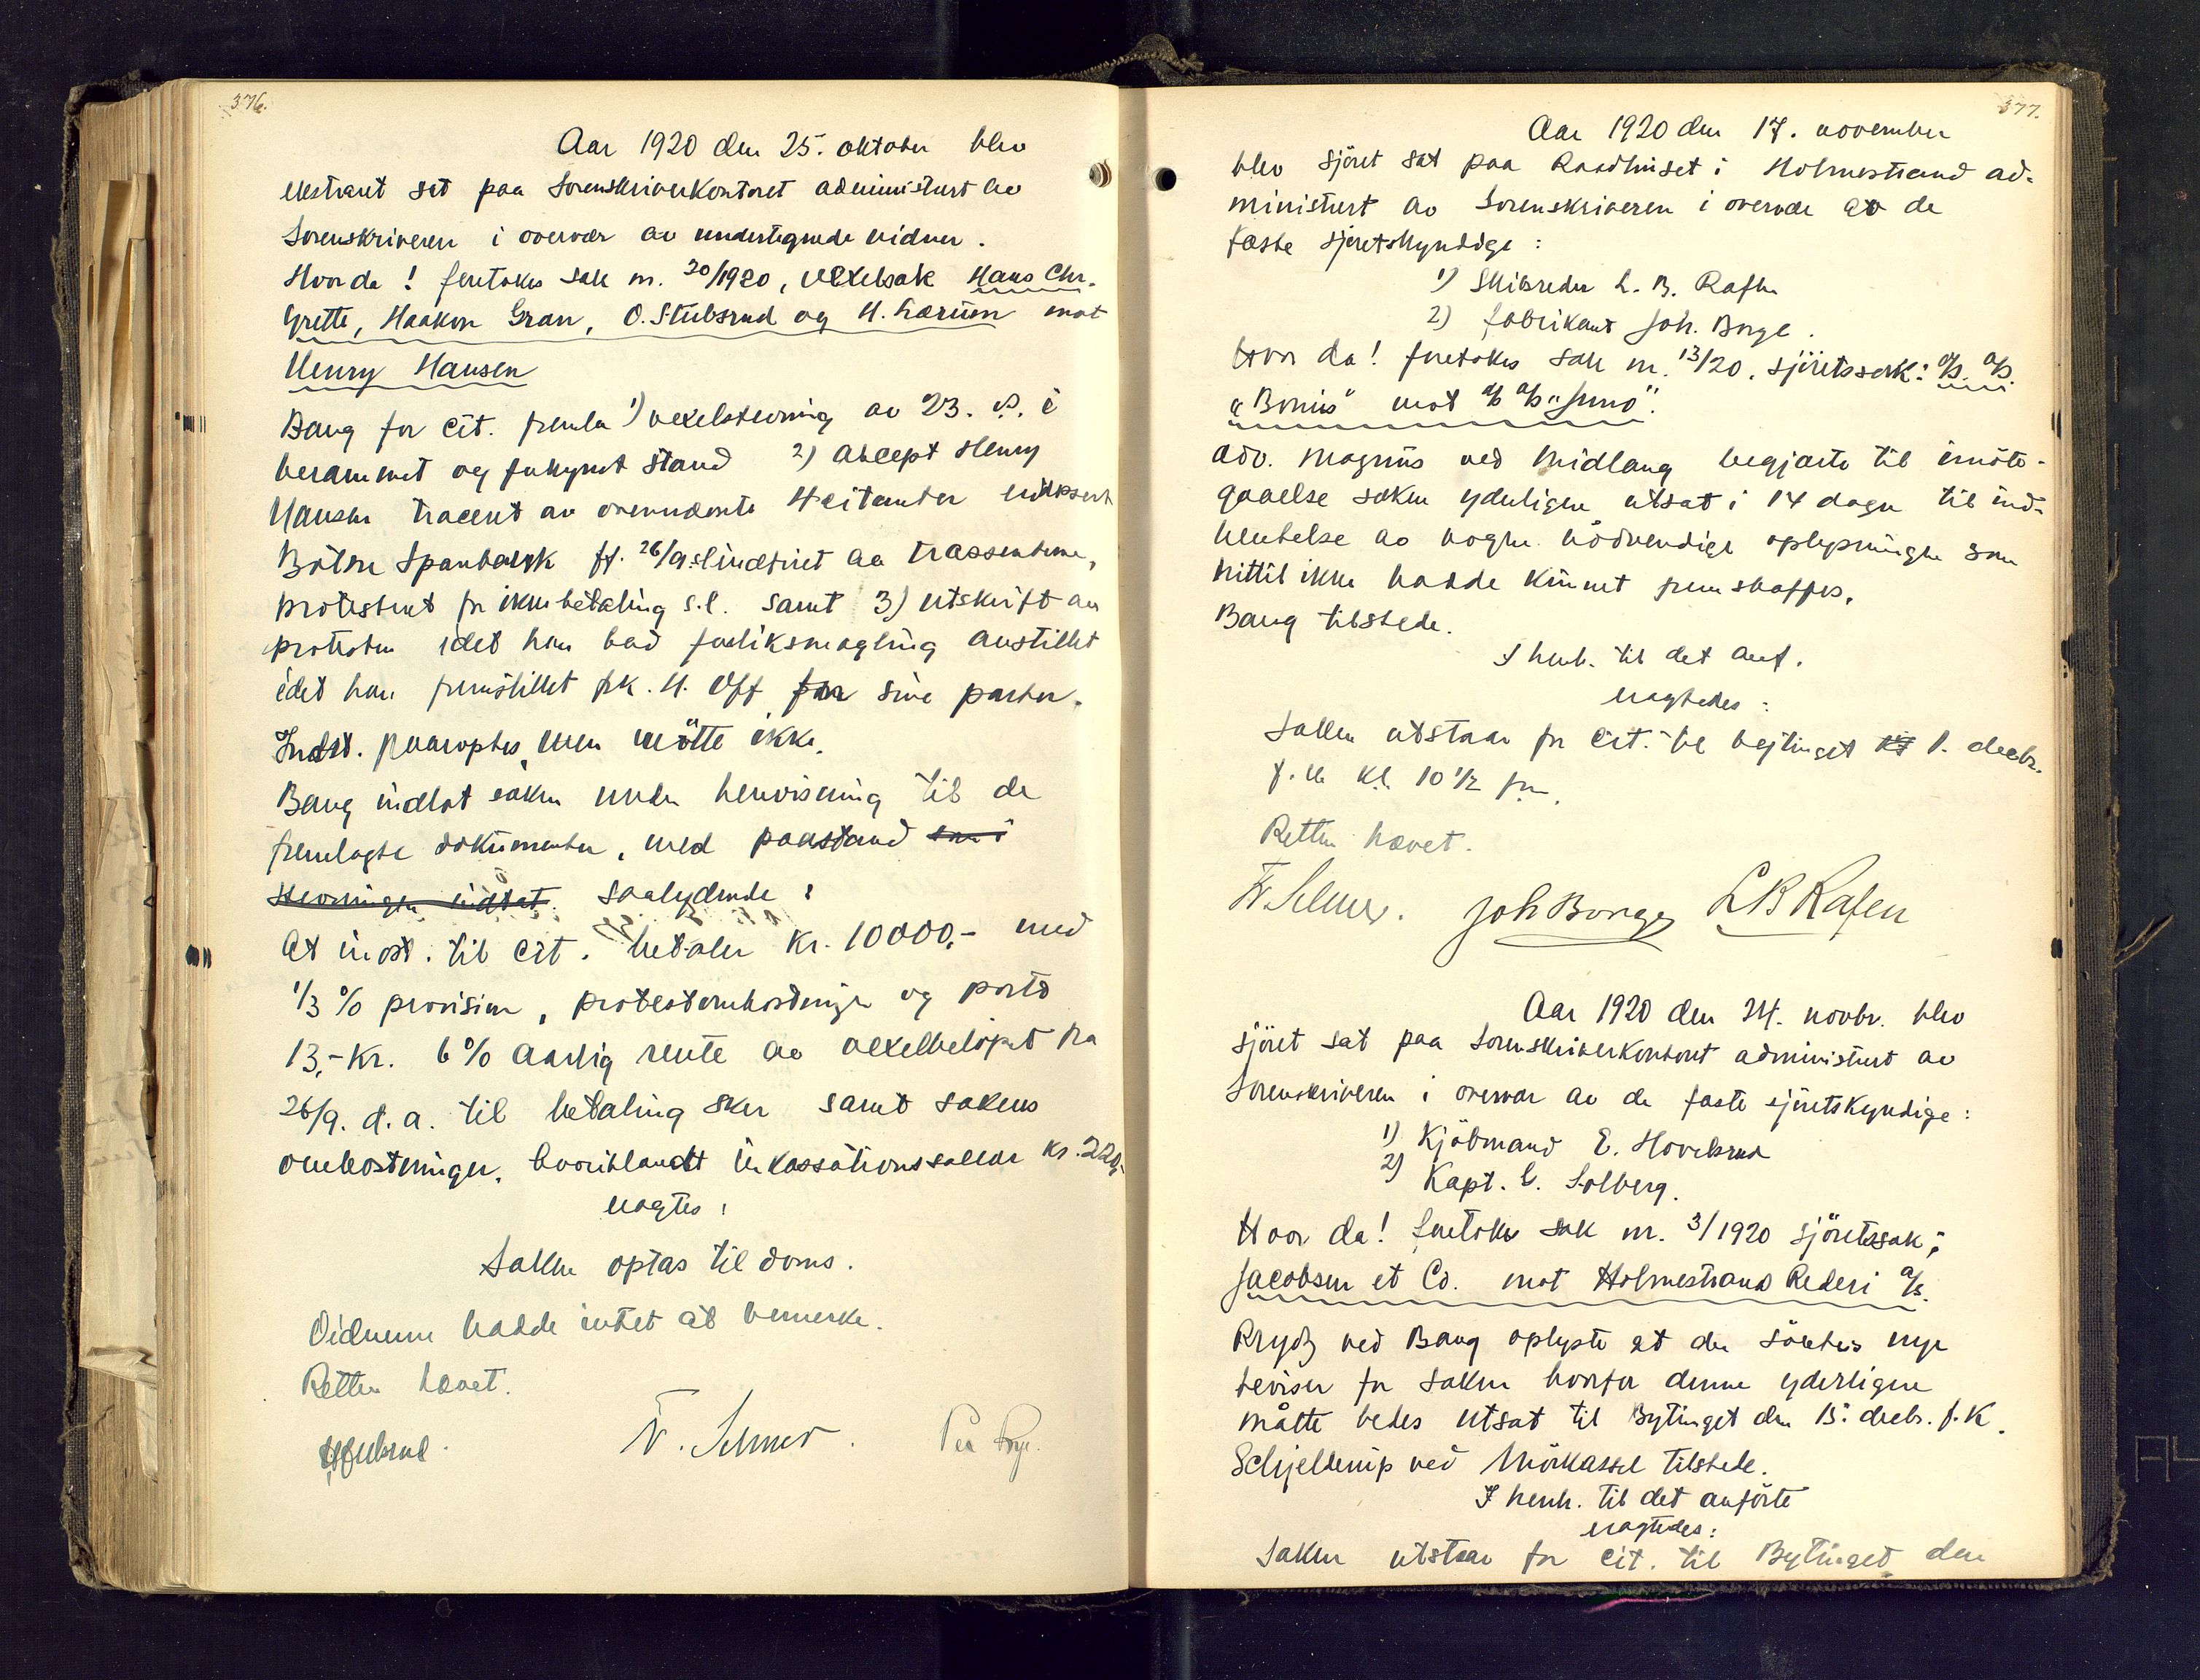 376.
Aar 1920 den 25. oktober blev
ekstraret sat paa Sorenskriverkontoret administrert av
Sorenskriveren i overvær av undertegnede vidner.
Hvor da! foretokes sak nr. 20/1920, vexelsak Hans Chr.
Grette, Haakon Gran, O. Stubsrud og H. Lærum mot
Henry Hansen
Bang for cit. fremla 1) vexelstevning av 23. ds. i
berammet og forkynt stand 2) accept Henry
Hansen traceret av ovennævnte 4 citanter
Botne Sparebank ff. 26/9 sl indfriet av trassentene,
protestert for ikke betaling s.l. samt 3) utskrift av
protesten idet han bad forliksmægling anstillet
idet han fremstillet frk. H. Off for sine parter.
Indst. paaroptes, men møtte ikke.
Bang indlot saken under henvisning til de
fremlagte dokumenter, med paastand som i
stevningen indtat. saalydende:
At indst. til cit. betaler kr. 10000,- med
1/3 % provision, protestomkostninger og porto
13,- kr. 6 % aarlig rente av vexelbeløpet fra
26/9. d.a. til betaling sker samt sakens
omkostninger, hvoriblandt inkassationssallær kr. 220,-
nagtes:
Saken optas til doms.
Vidnerne hadde intet at bemerke.
Retten hævet.
Fr. Selmer.
377.
Aar 1920 den 17. november
blev sjöret sat paa Raadhuset i Holmestrand ad-
ministrert av Sorenskriveren i overvær av de
faste sjøretskyndige:
1) Skibsreder L. B. Rafen
2) fabrikant Joh. Borge.
Hvor da! foretokes sak nr. 13/20. sjöretssak: a/s. a/s.
"Bonus" mot a/s a/s "Juno".
Adv. Magnus ved Midlang begjærte til imøte-
gaaelse saken yderligere utsat i 14 dager til ind-
hentelse av nogen nödvendige oplysninger som
hittil ikke hadde kunnet fremskaffes.
Bang tilstede.
I henh. til det anf.
nagtedes:
Saken utstaar for cit. til bytinget 1. decbr.
f.k kl. 10 1/2 fm.
Retten hævet.
Fr. Selmer. Joh Borge LB Rafen
Aar 1920 den 24. novbr. blev
sjöret sat paa Sorenskriverkontoret administrert av
Sorenskriveren i overvær av de faste sjøretskyndige:
1) Kjöbmand E. Hovebrud
2) Kapt. C. Solberg.
Hvor da! foretokes sak nr. 3/1920 sjöretssak;
Jacobsen et Co. mot Holmestrand Rederi a/s.
Krydz ved Bang oplyste at der søktes nye
beviser for saken hvorfor denne yderligere
måtte bedes utsat til Bytinget den 15. decbr. f.k.
Schjelderup ved Mörkassel tilstede.
I henh. til det anförte
nagtedes:
Saken utstaar for cit. til Bytinget den